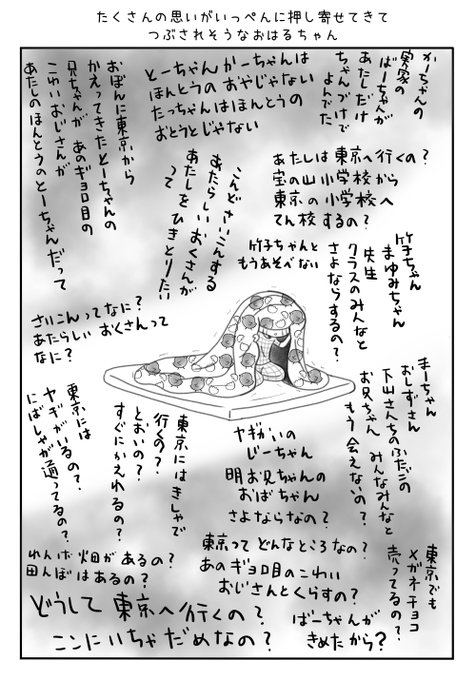 たくさんの思いがいっぺんに押し寄せてきて
つぶされそうなおはるちゃん
かーちゃんの
実家の
ばーちゃんが
あたしだけ
ちゃんづけで
よんでた
とーちゃんかーちゃんは
ほんとうのおやじゃない
たっちゃんはほんとうの
おとうとじゃない
おぼんに東京から
かえってきたとーちゃんの
兄ちゃんが あのギョロ目の
こわいおじさんが
あたしのほんとうのとーちゃんだって
あたしは東京へ行くの?
宝の山小学校から
東京の小学校へ
てん校するの?
こんどさいこんする
あたらしいおくさんが
あたしをひきとりたい
って
竹子ちゃんと
もうあそべない
竹子ちゃん
まゆみちゃん
先生
クラスのみんなと
さよならするの?
さいこんってなに?
あたらしい おくさんって
なに?
まーちゃん
おしずさん
下山さんちのふたごの
お兄ちゃん みんなみんなと
もう会えないの?
ヤギかいの
じーちゃん
明お兄ちゃんの
おばちゃん
さよならなの?
東京にはきしゃで
行くの?
とおいの?
すぐにかえれるの?
東京には
ヤギがいるの?
にばしゃが通ってるの?
東京ってどんなところなの?
あのギョロ目のこわい
おじさんとくらすの?
東京でも
メガネチョコ
売ってるの?
れんげ畑があるの?
田んぼはあるの?
どうして東京へ行くの?
ここにいちゃだめなの?
ばーちゃんが
きめたから?